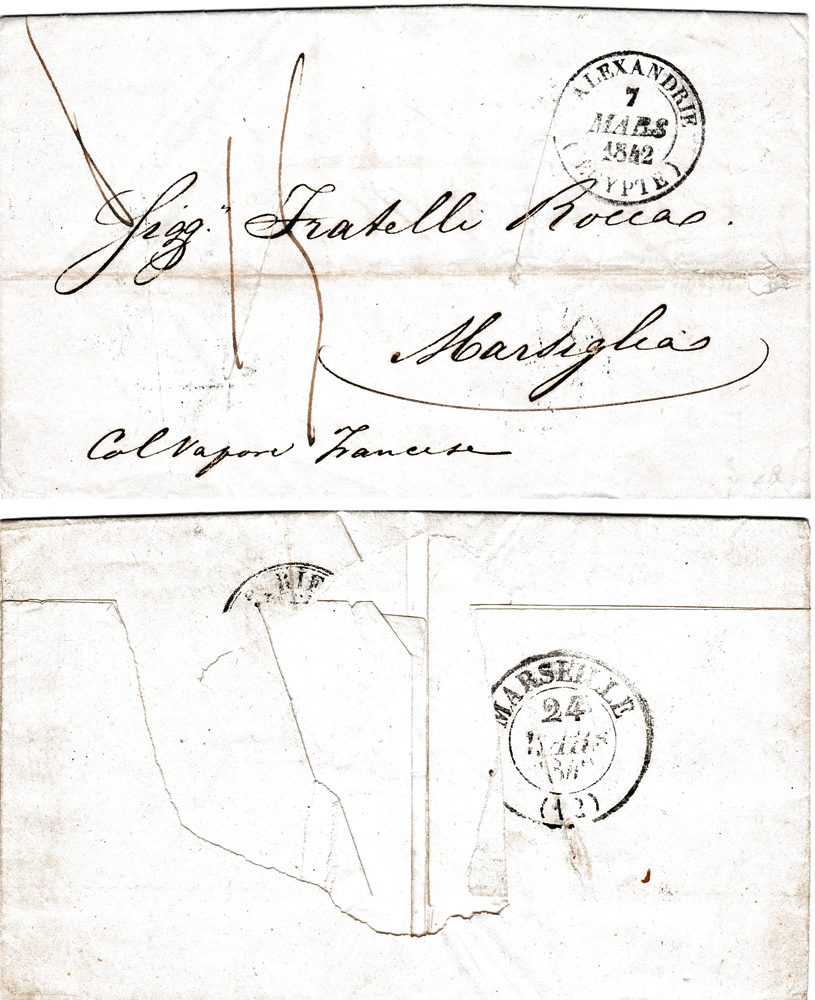 ALEXANDRIE
7
MARS
1842
(EGYPTE)
Sigg.ri Fratelli Rocca.
Marsiglia
Col Vapore Francese
RIE
MARSEILLE
24
MARS
(12)